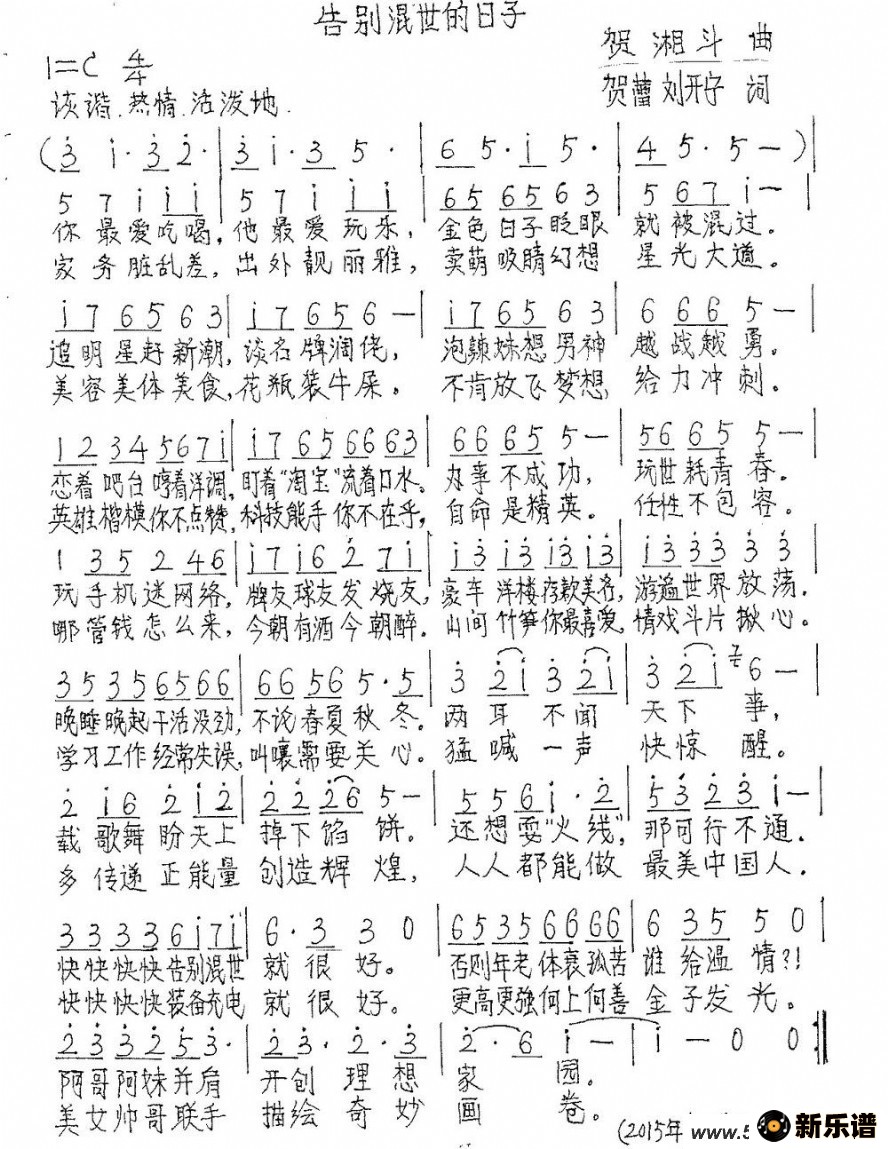 告别混世的日子
贺湘斗 曲
1=C 4/4
贺蕾 刘开字 词
诙谐、热情、活泼地.
(3 i·3 2· | 3 i·3 5· | 6 5·i 5· | 4 5·5 — )
5 7 i i i | 5 7 i i i | 65 65 6 3 | 5 67 i —
你最爱吃喝,他最爱玩乐,金色日子眨眼就被混过。
家务脏乱差,出外靓丽雅,卖萌吸睛幻想星光大道。
i7 65 6 3 | i7 65 6 — | i7 65 6 3 | 6 66 5 —
追明星赶新潮,谈名牌润佬,泡辣妹想男神越战越勇。
美容美体美食,花瓶装牛屎。不肯放飞梦想给力冲刺。
12 34 56 7i | i7 65 66 63 | 66 65 5 — | 56 65 5 —
恋着吧台哼着洋调,盯着“淘宝”流着口水。办事不成功,玩世耗青春。
英雄楷模你不点赞,科技能手你不在乎,自命是精英。任性不包容。
1 35 2 46 | i7 i6 2 7i | i3 i3 i3 i3 | i3 33 3 3
玩手机迷网络,牌友球友发烧友,豪车洋楼存款美名,游遍世界放荡.
哪管钱怎么来,今朝有酒今朝醉.山间竹笋你最喜爱,情戏斗片揪心。
35 35 65 66 | 66 56 5·5 | 3 2i 3 2i | 3 2i 7 6 —
晚睡晚起干活没劲,不论春夏秋冬。两耳不闻天下事,
学习工作经常失误,叫嚷需要关心。猛喊一声快惊醒。
2 i6 2 i2 | 22 26 5 — | 5 5 6i·2 | 53 23 i —
载歌舞盼天上掉下馅饼。还想耍“火线”,那可行不通.
多传递正能量创造辉煌,人人都能做最美中国人.
33 33 6i 7i | 6·3 3 0 | 65 35 66 66 | 6 35 5 0
快快快快告别混世就很好。否则年老体衰孤苦谁给温情?!
快快快快装备充电就很好.更高更强何上何善金子发光。
23 32 53· | 23·2·3 | 2·6 i — | i — 0 0
阿哥阿妹并肩开创理想家园。
美女帅哥联手描绘奇妙画卷。
(2015年 www.5
新乐谱